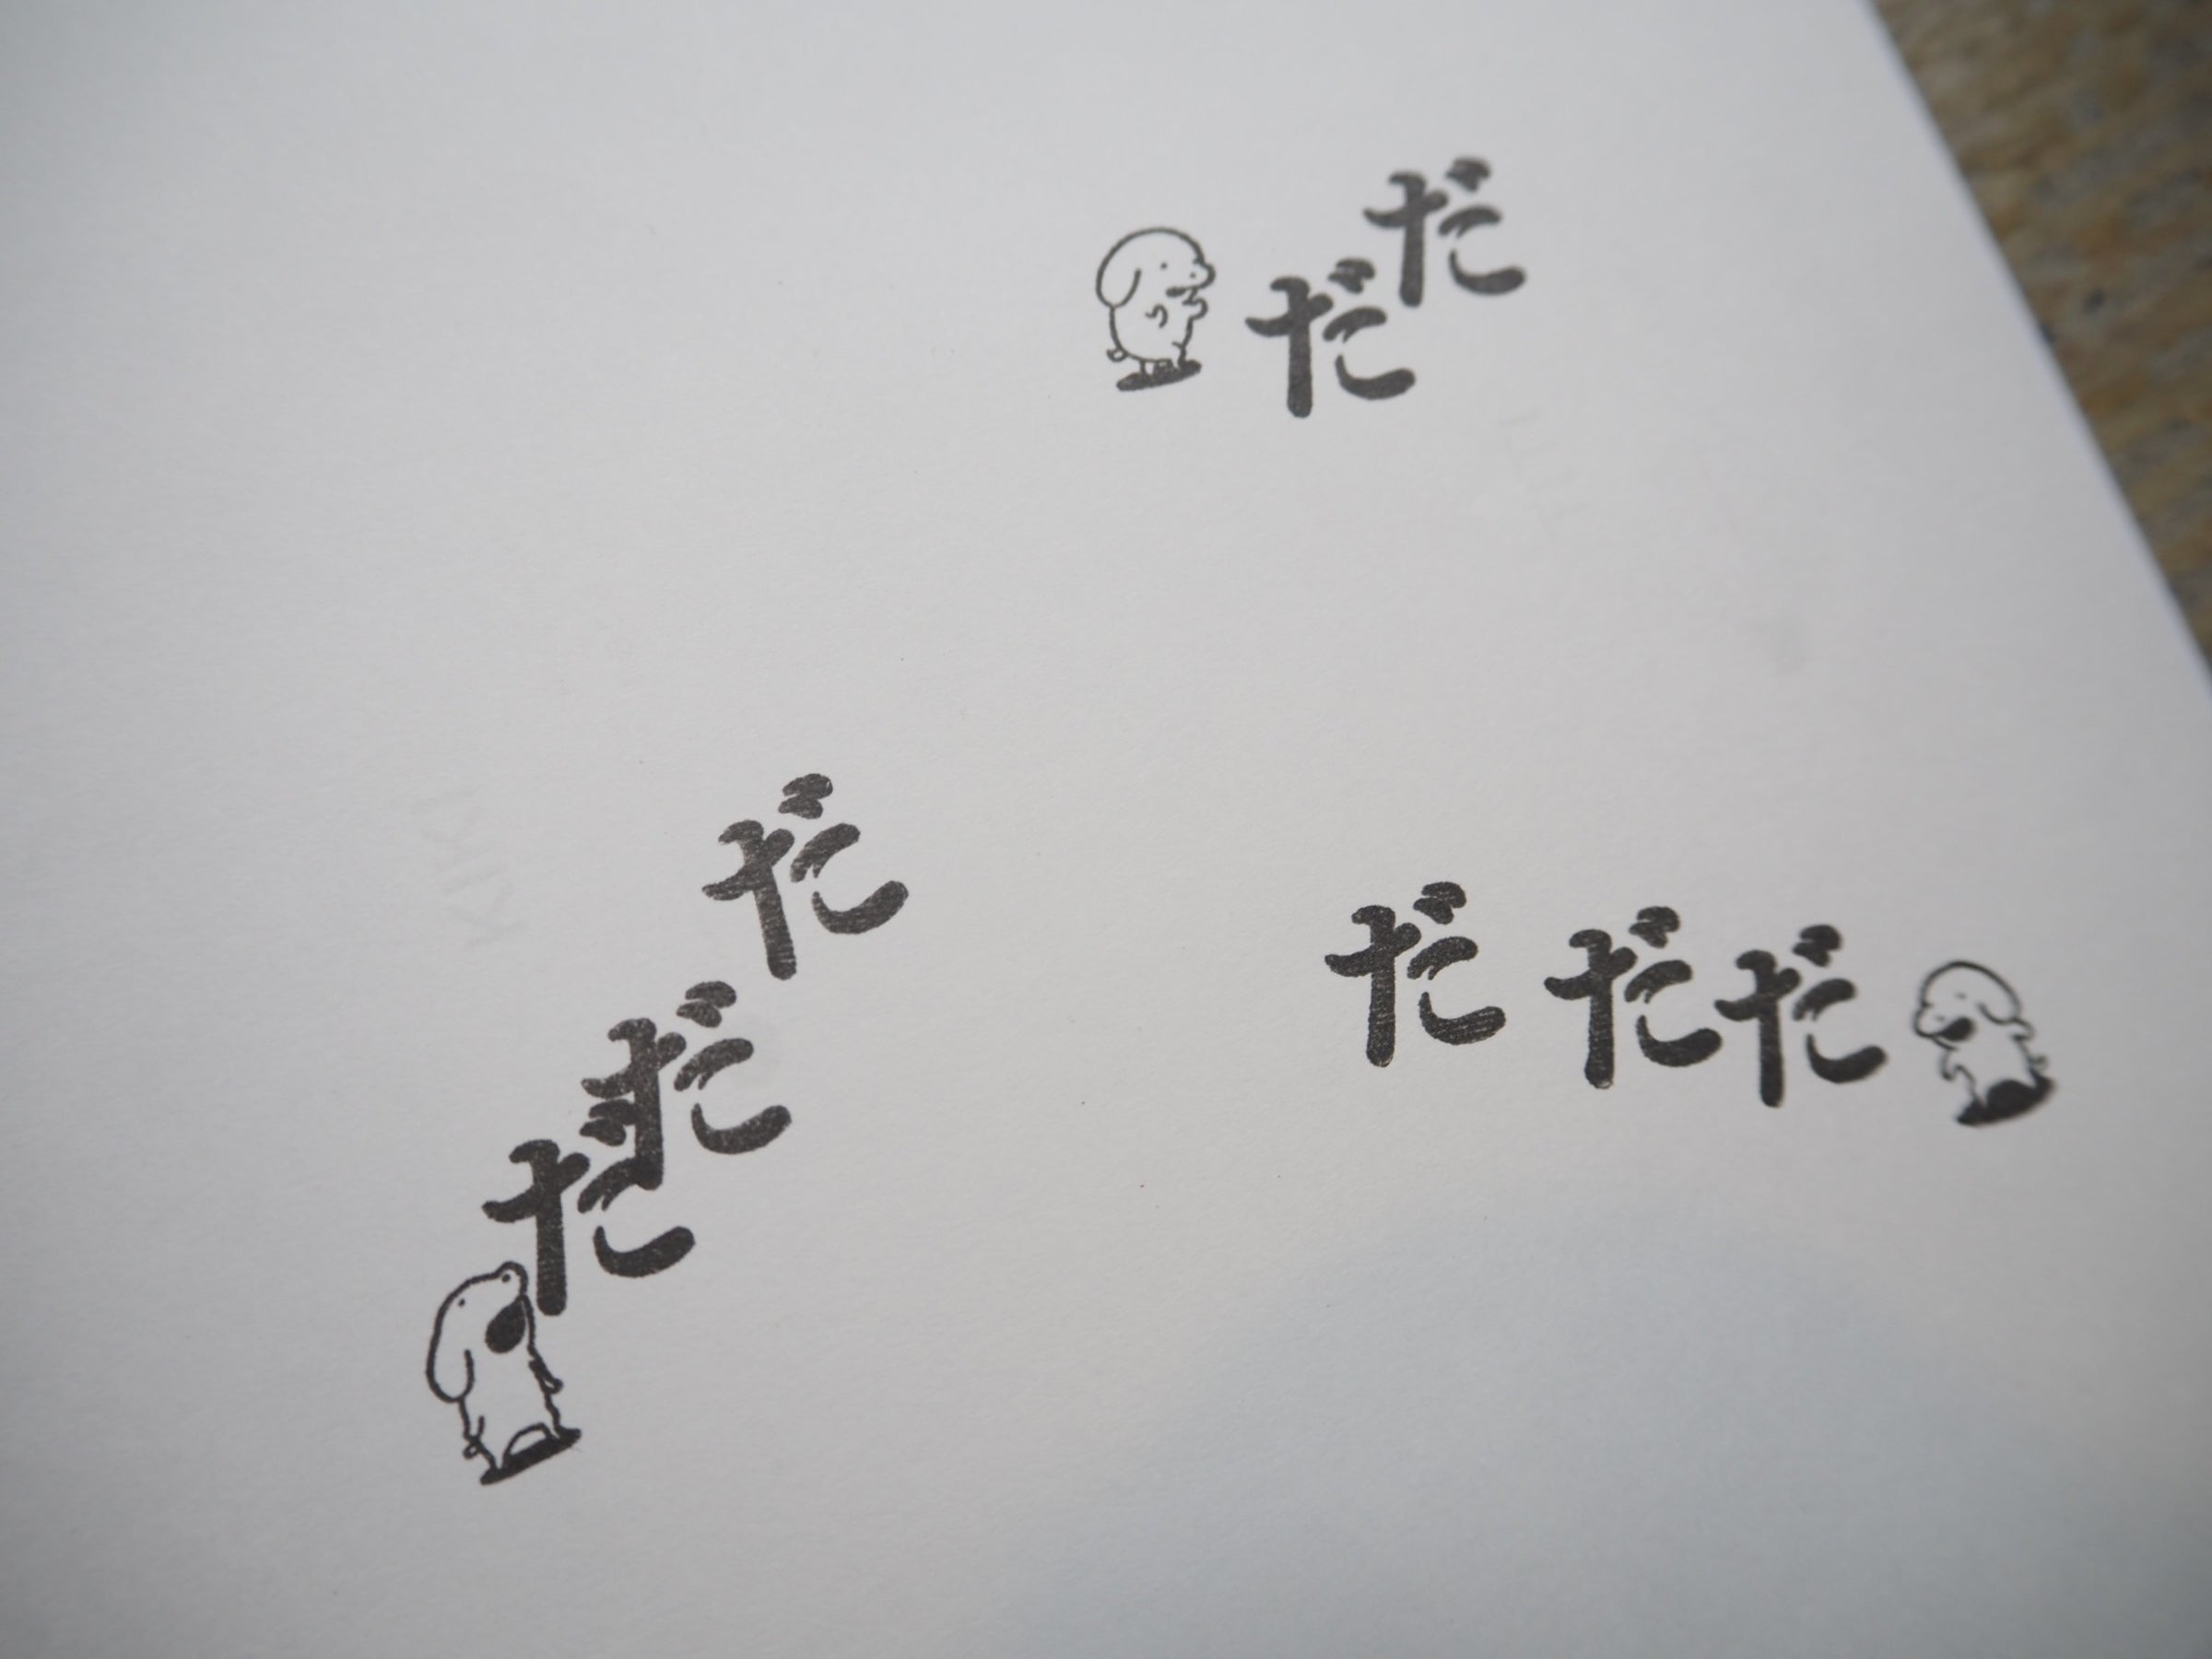 だだ
だだだ
だだだ